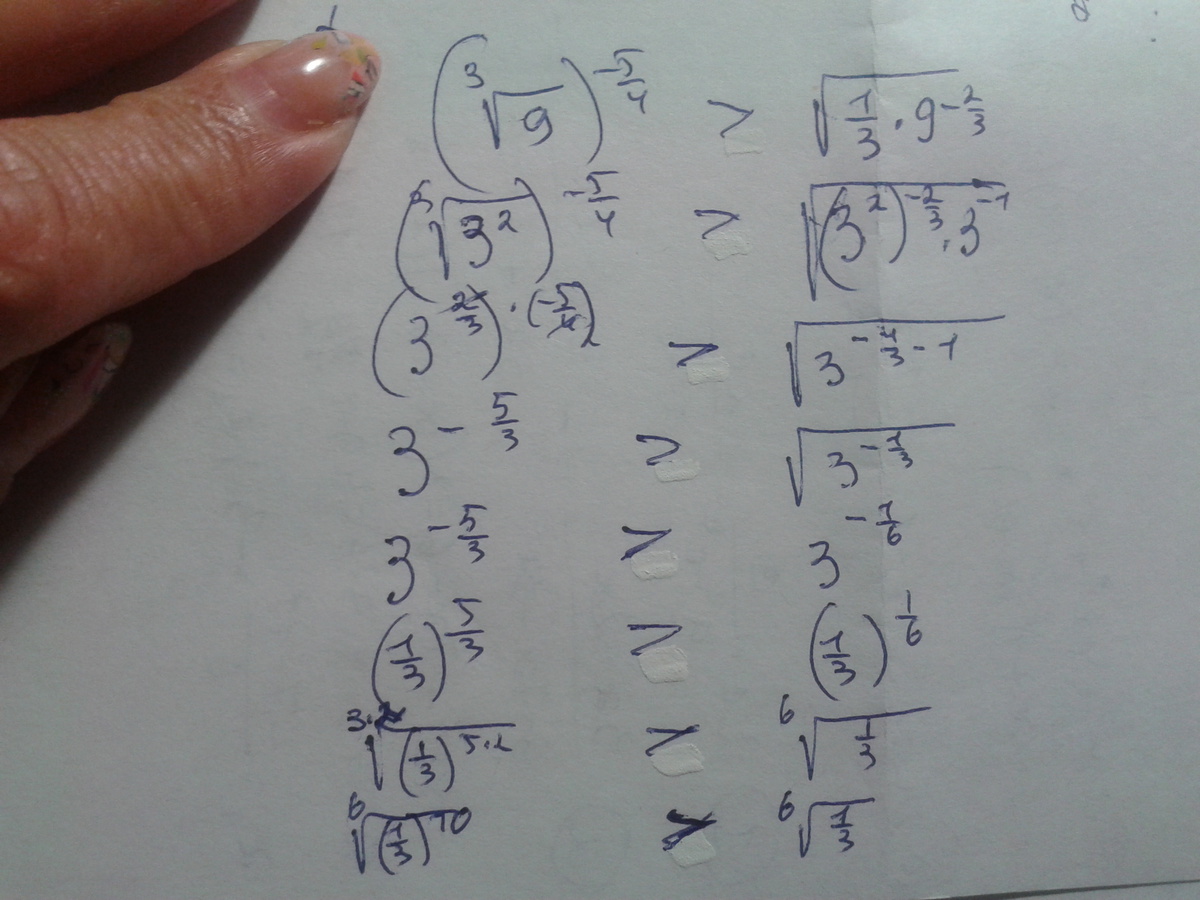 (∛9)^{-5/4} > √(1/3 · 9^{-2/3})
(∛3²)^{-5/4} > √((3²)^{-2/3} · 3^{-1})
(3^{2/3}) · (-5/4)2 > √(3^{-1/3 - 1})
3^{-5/3} > √(3^{-1/3})
3^{-5/3} > 3^{-1/6}
(1/3)^{5/3} > (1/3)^{1/6}
^{3·2}√((1/3)^{5·2}) > ⁶√(1/3)
⁶√((1/3)^{10}) > ⁶√(1/3)